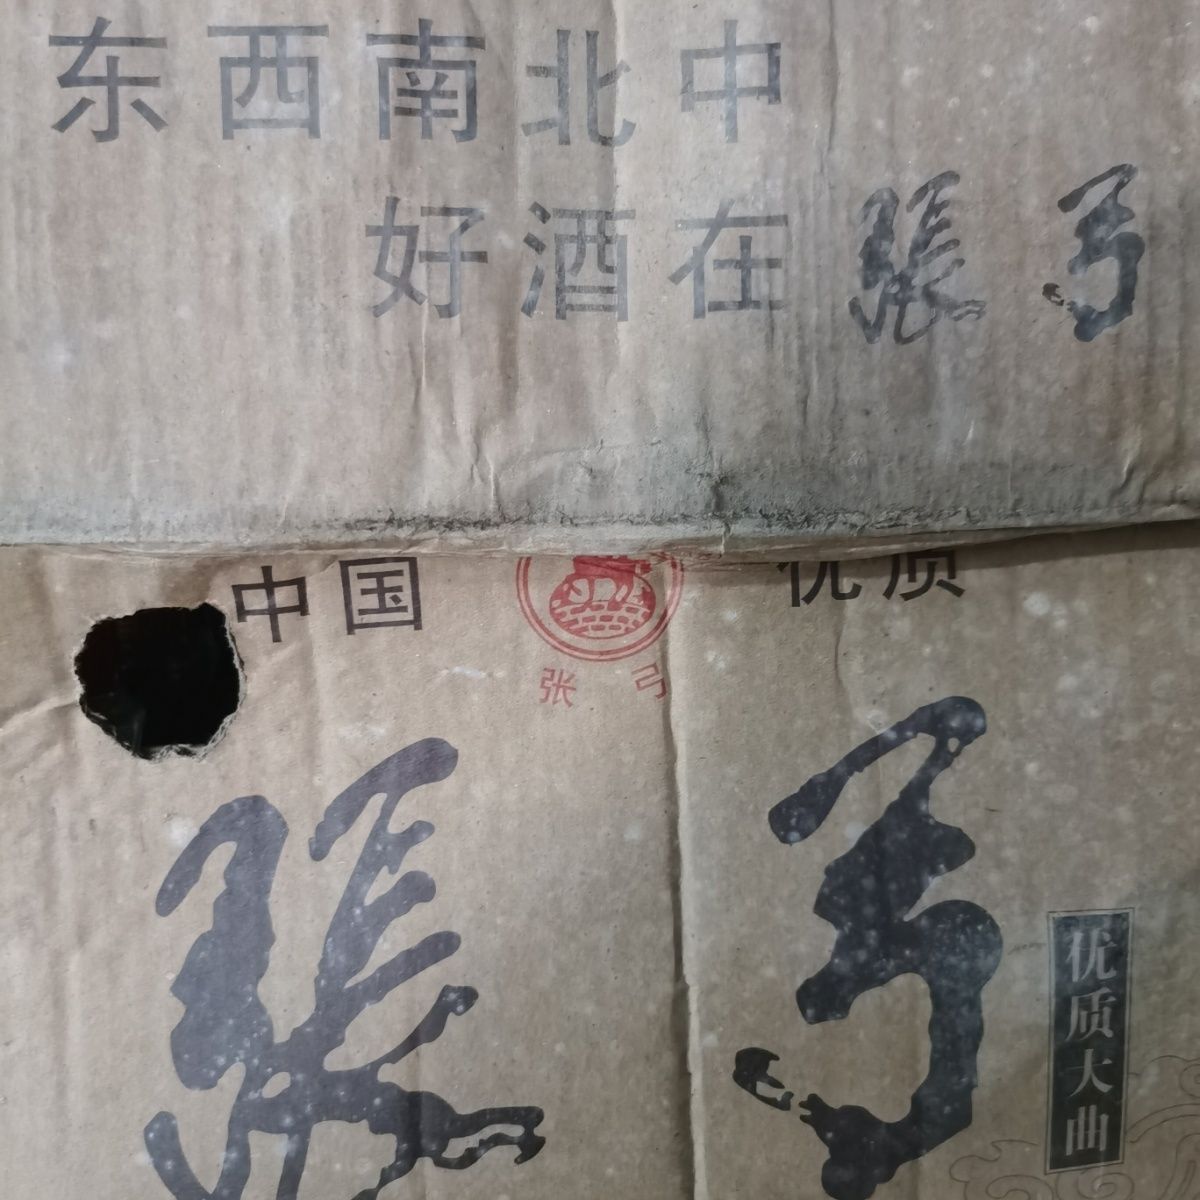 东西南北中
好酒在張弓
中国 优质
张弓
張弓
优质大曲